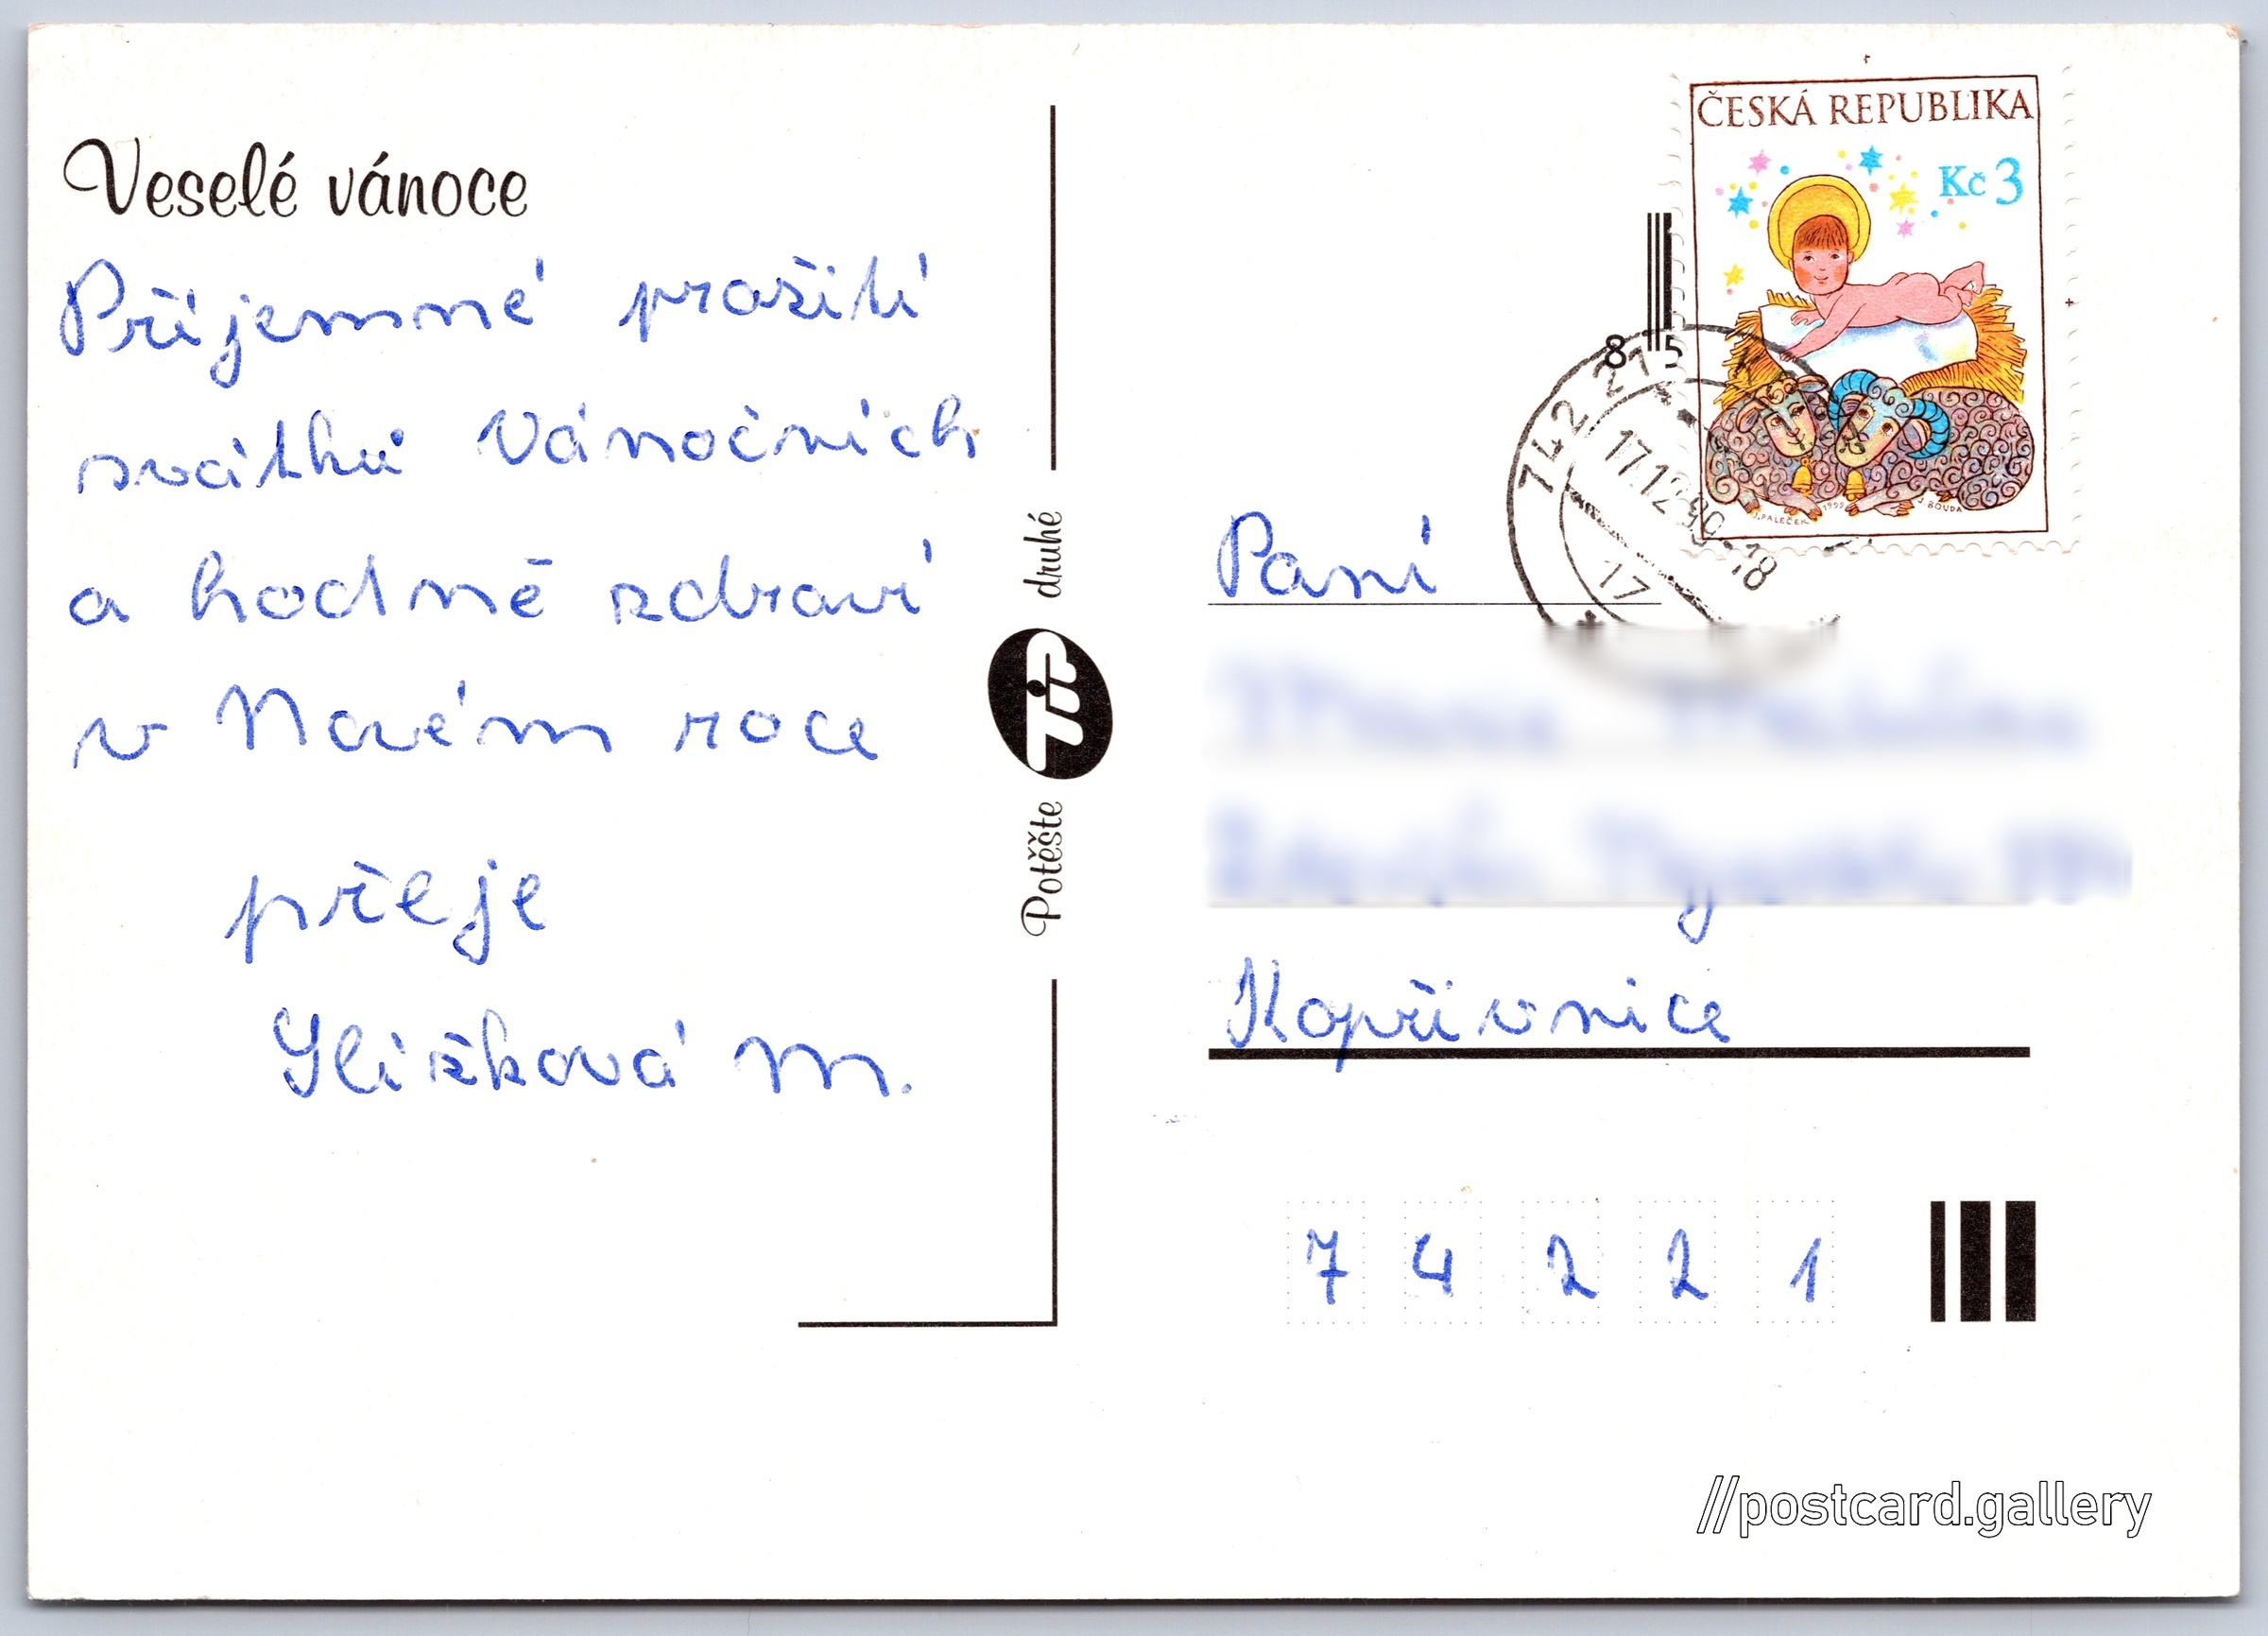 Veselé vánoce
Příjemné prožití
svátků Vánočních
a hodně zdraví
v Novém roce
přeje
Slížková M.
Potěšte TIP druhé
ČESKÁ REPUBLIKA
Kč 3
J. PALEČEK 1999 J. BOUDA
8 5
742 21 1
17.12.99-18
17
Paní
Kopřivnice
74221
//postcard.gallery